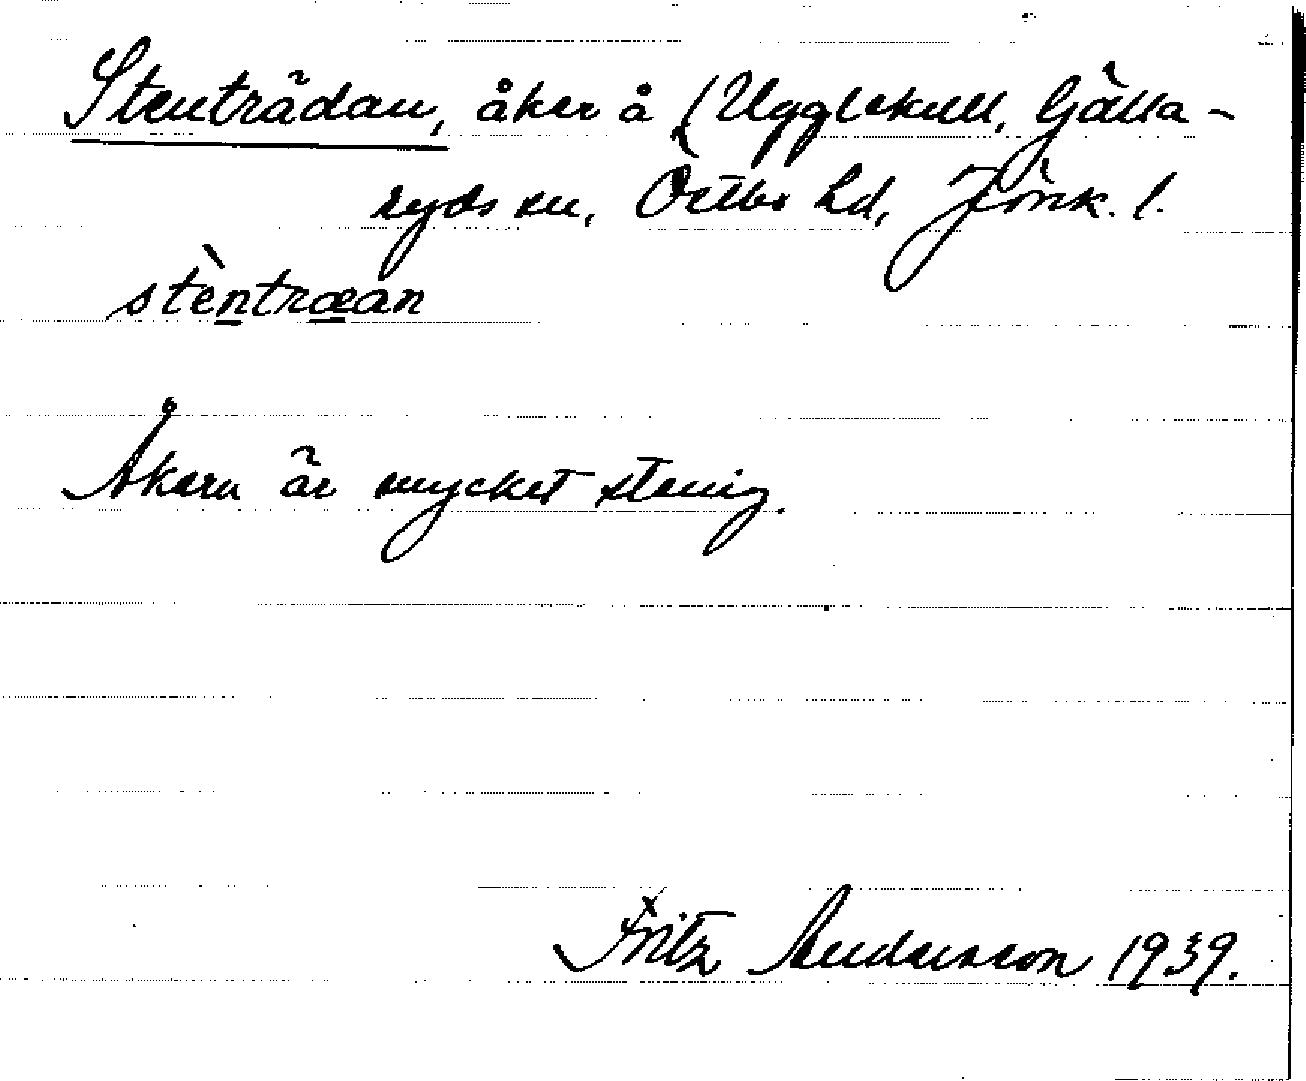 Stenträdan, åker å (Ugglekull, Gälla-
ryds sn, Östbo hd, Jönk. l.
stèntræan
Åkern är mycket stenig.
Fritz Anderson 1939.